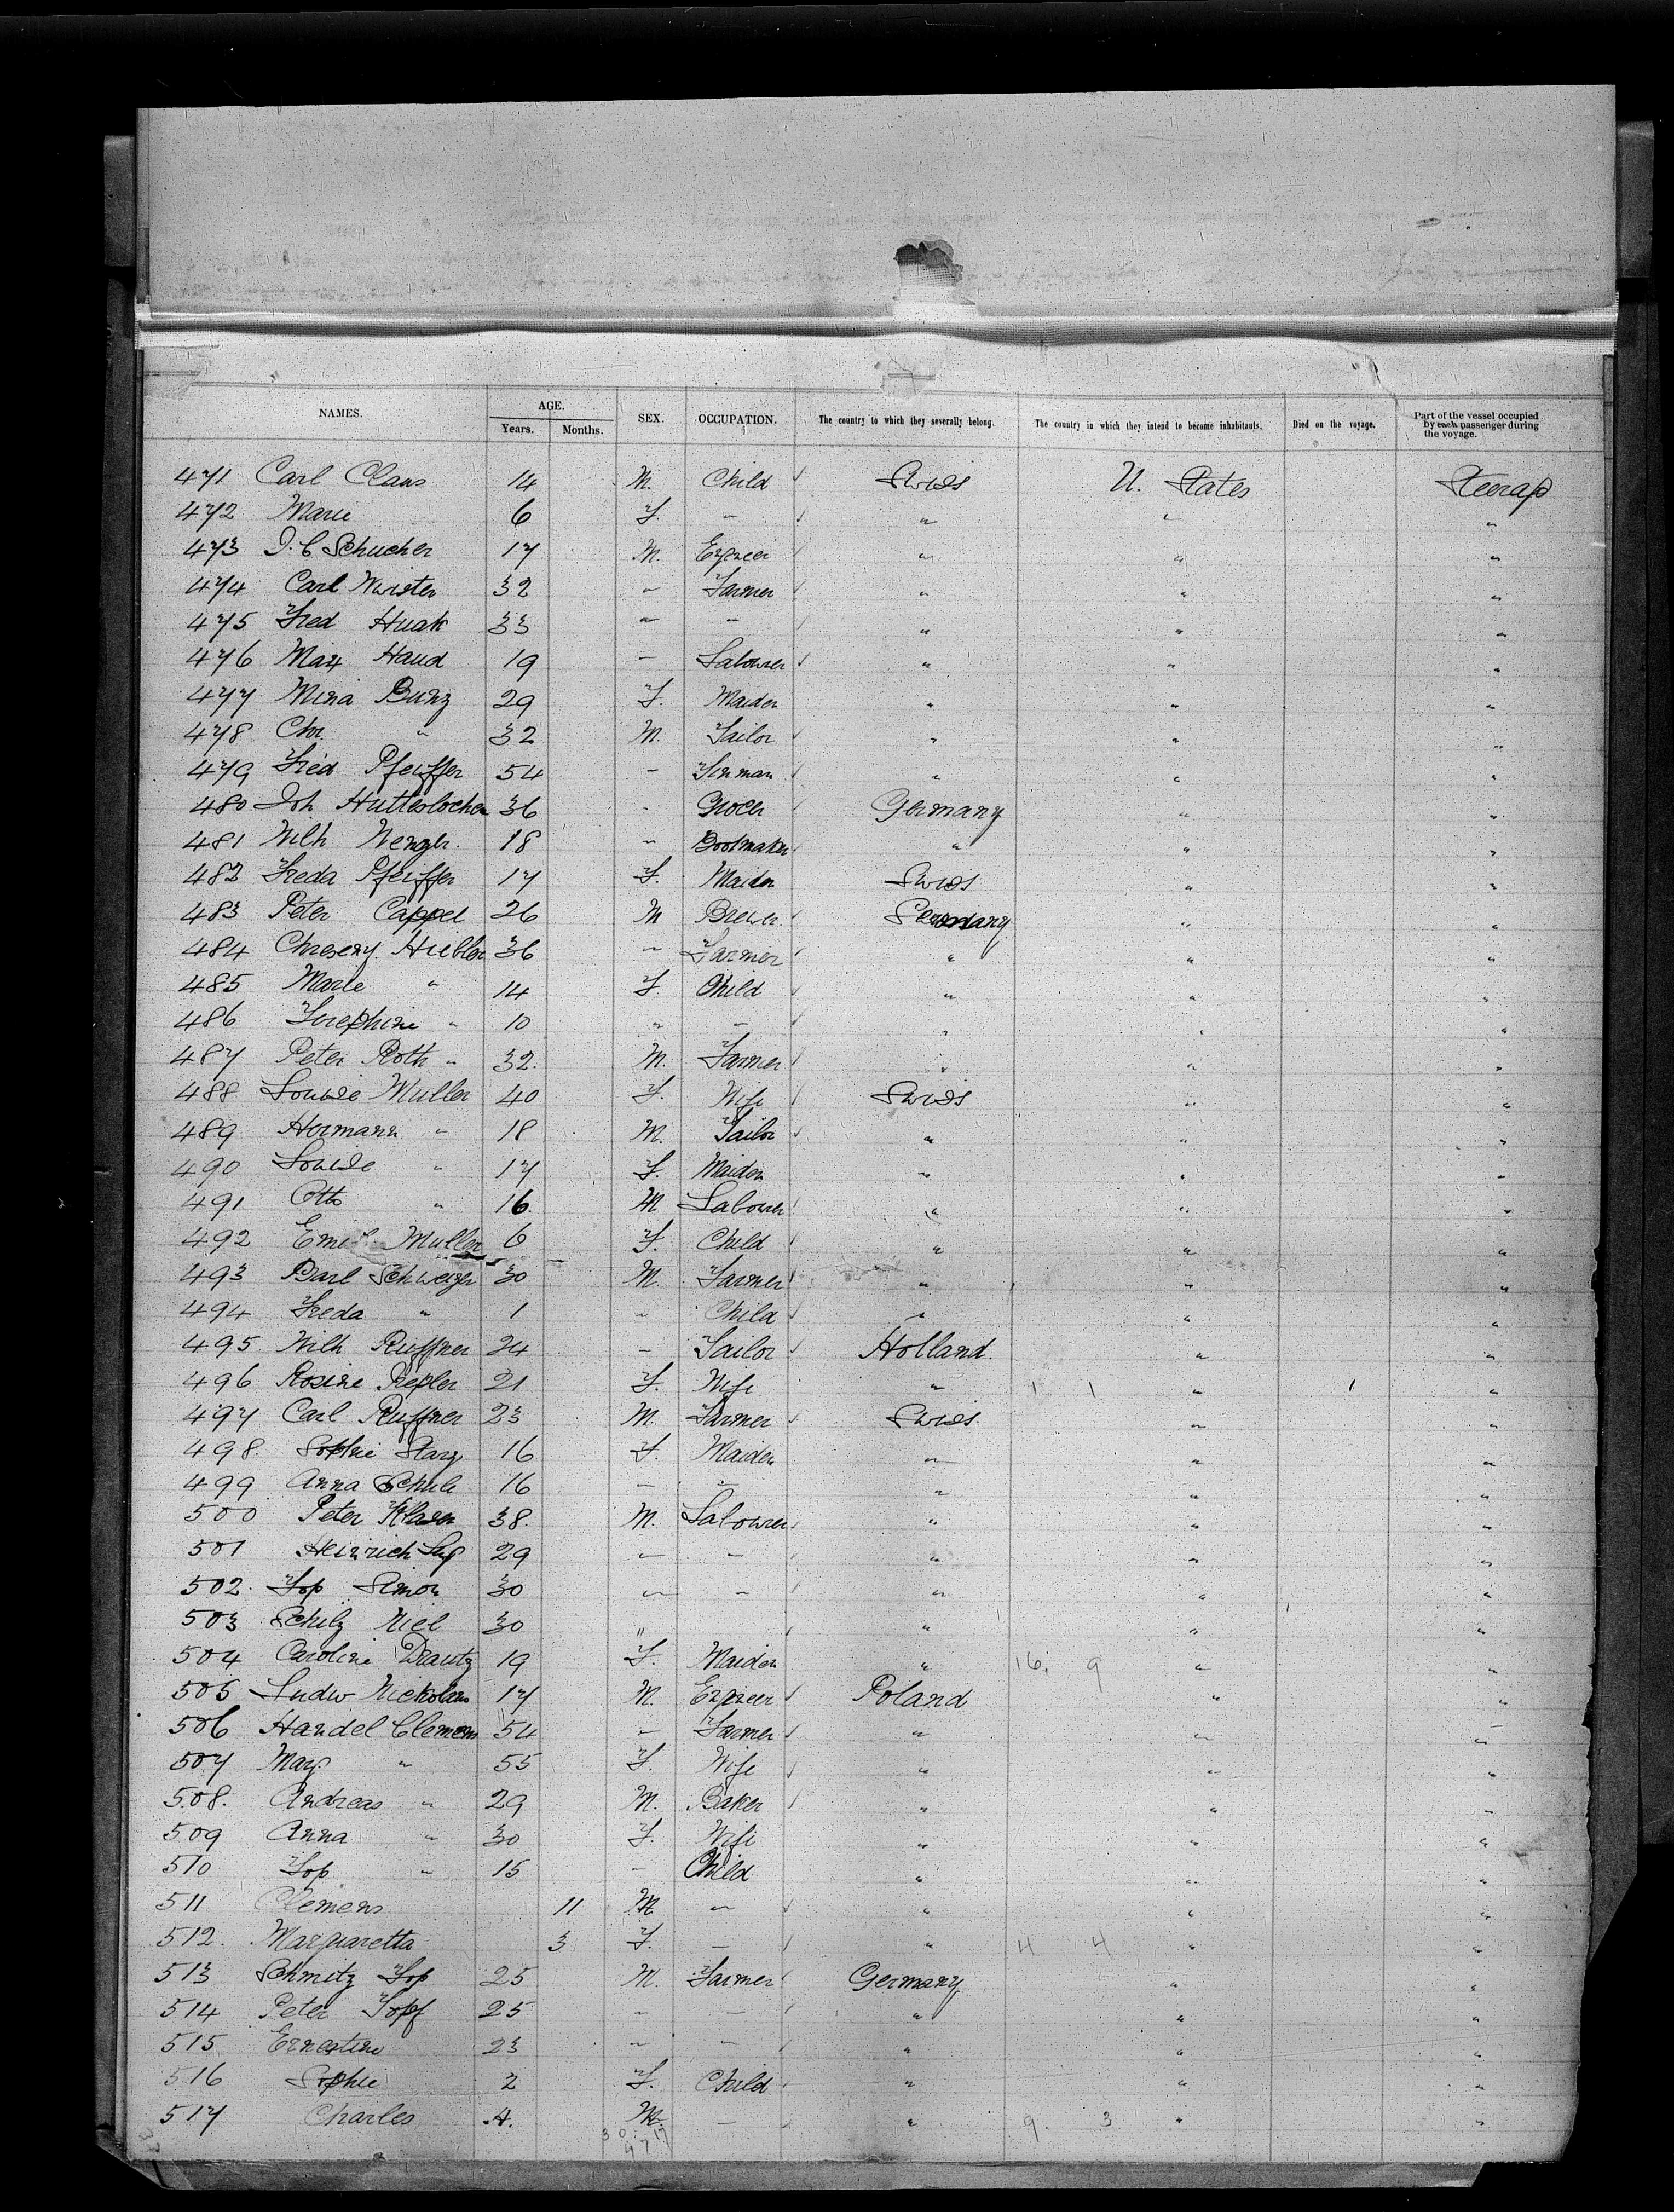 NAMES. AGE. Years. Months. SEX. OCCUPATION. The country to which they severally belong. The country in which they intend to become inhabitants. Died on the voyage. Part of the vessel occupied by each passenger during the voyage.
471 Carl Claus 14 M. Child Swiss U. States Steerag
472 Marie 6 F. — " " "
473 J. C Schucher 17 M. Engneer " " "
474 Carl Wurster 32 — Farmer " " "
475 Fred Huak 33 — — " " "
476 Max Haud 19 — Labourer " " "
477 Mina Bunz 29 F. Maiden " " "
478 Chr. " 32 M. Tailor " " "
479 Fred Pfeiffer 54 — Tinman " " "
480 Joh. Hutteslocher 36 - Grocer Germany " "
481 Wilh Wengler. 18 — Bootmaker " " "
482 Freda Pfeiffer 17 F. Maiden Swiss " "
483 Peter Cappel 26 M Brewer. Germany " "
484 Hiebler 36 — Farmer " " "
485 Marie " 14 F. Child " " "
486 Josephine " 10 " — " " "
487 Peter Roth " 32. M. Farmer " " "
488 Louise Muller 40 F. Wife Swiss " "
489 Hermann " 18 M. Tailor " " "
490 Louise " 17 F. Maiden " " "
491 Otto " 16. M Labourer " " "
492 Muller 6 F. Child " " "
493 Schweizer 30 M. Farmer " " "
494 Freda " 1 — Child " " "
495 Wilh Ruffner 24 — Tailor Holland. " "
496 Rosine Kepler 21 F. Wife " 1 1 " 1 "
497 Carl Ruffner 23 M. Farmer Swiss. " "
498. Sophie Starz 16 F. Maiden " " "
499 Anna Schule 16 — — " " "
500 Peter Klasen 38. M. Labourer " " "
501 Heinrich 29 — — " " "
502. Jos Simon 30 — — " " "
503 Schilz Niel 30 " " " "
504 Caroline Drautz 19 F. Maiden " 16. 9 " "
505 Ludw Nickolaus 17 M. Engineer Poland " "
506 Handel Clemens 54 — Farmer " " "
507 Marg. " 55 F. Wife " " "
508. Andreas " 29 M. Baker " " "
509 Anna " 30 F. Wife " " "
510 Jos " 15 — Child " " "
511 Clemens 11 M — " " "
512. Marguaretta 3 F. — " 4 4 " "
513 Schmitz Jos 25 M. Farmer Germany " "
514 Peter Topf 25 — — " " "
515 Ernestine 23 — — " " "
516 Sophie 2 F. Child " " "
517 Charles 4. M. — " 9. 3 " "